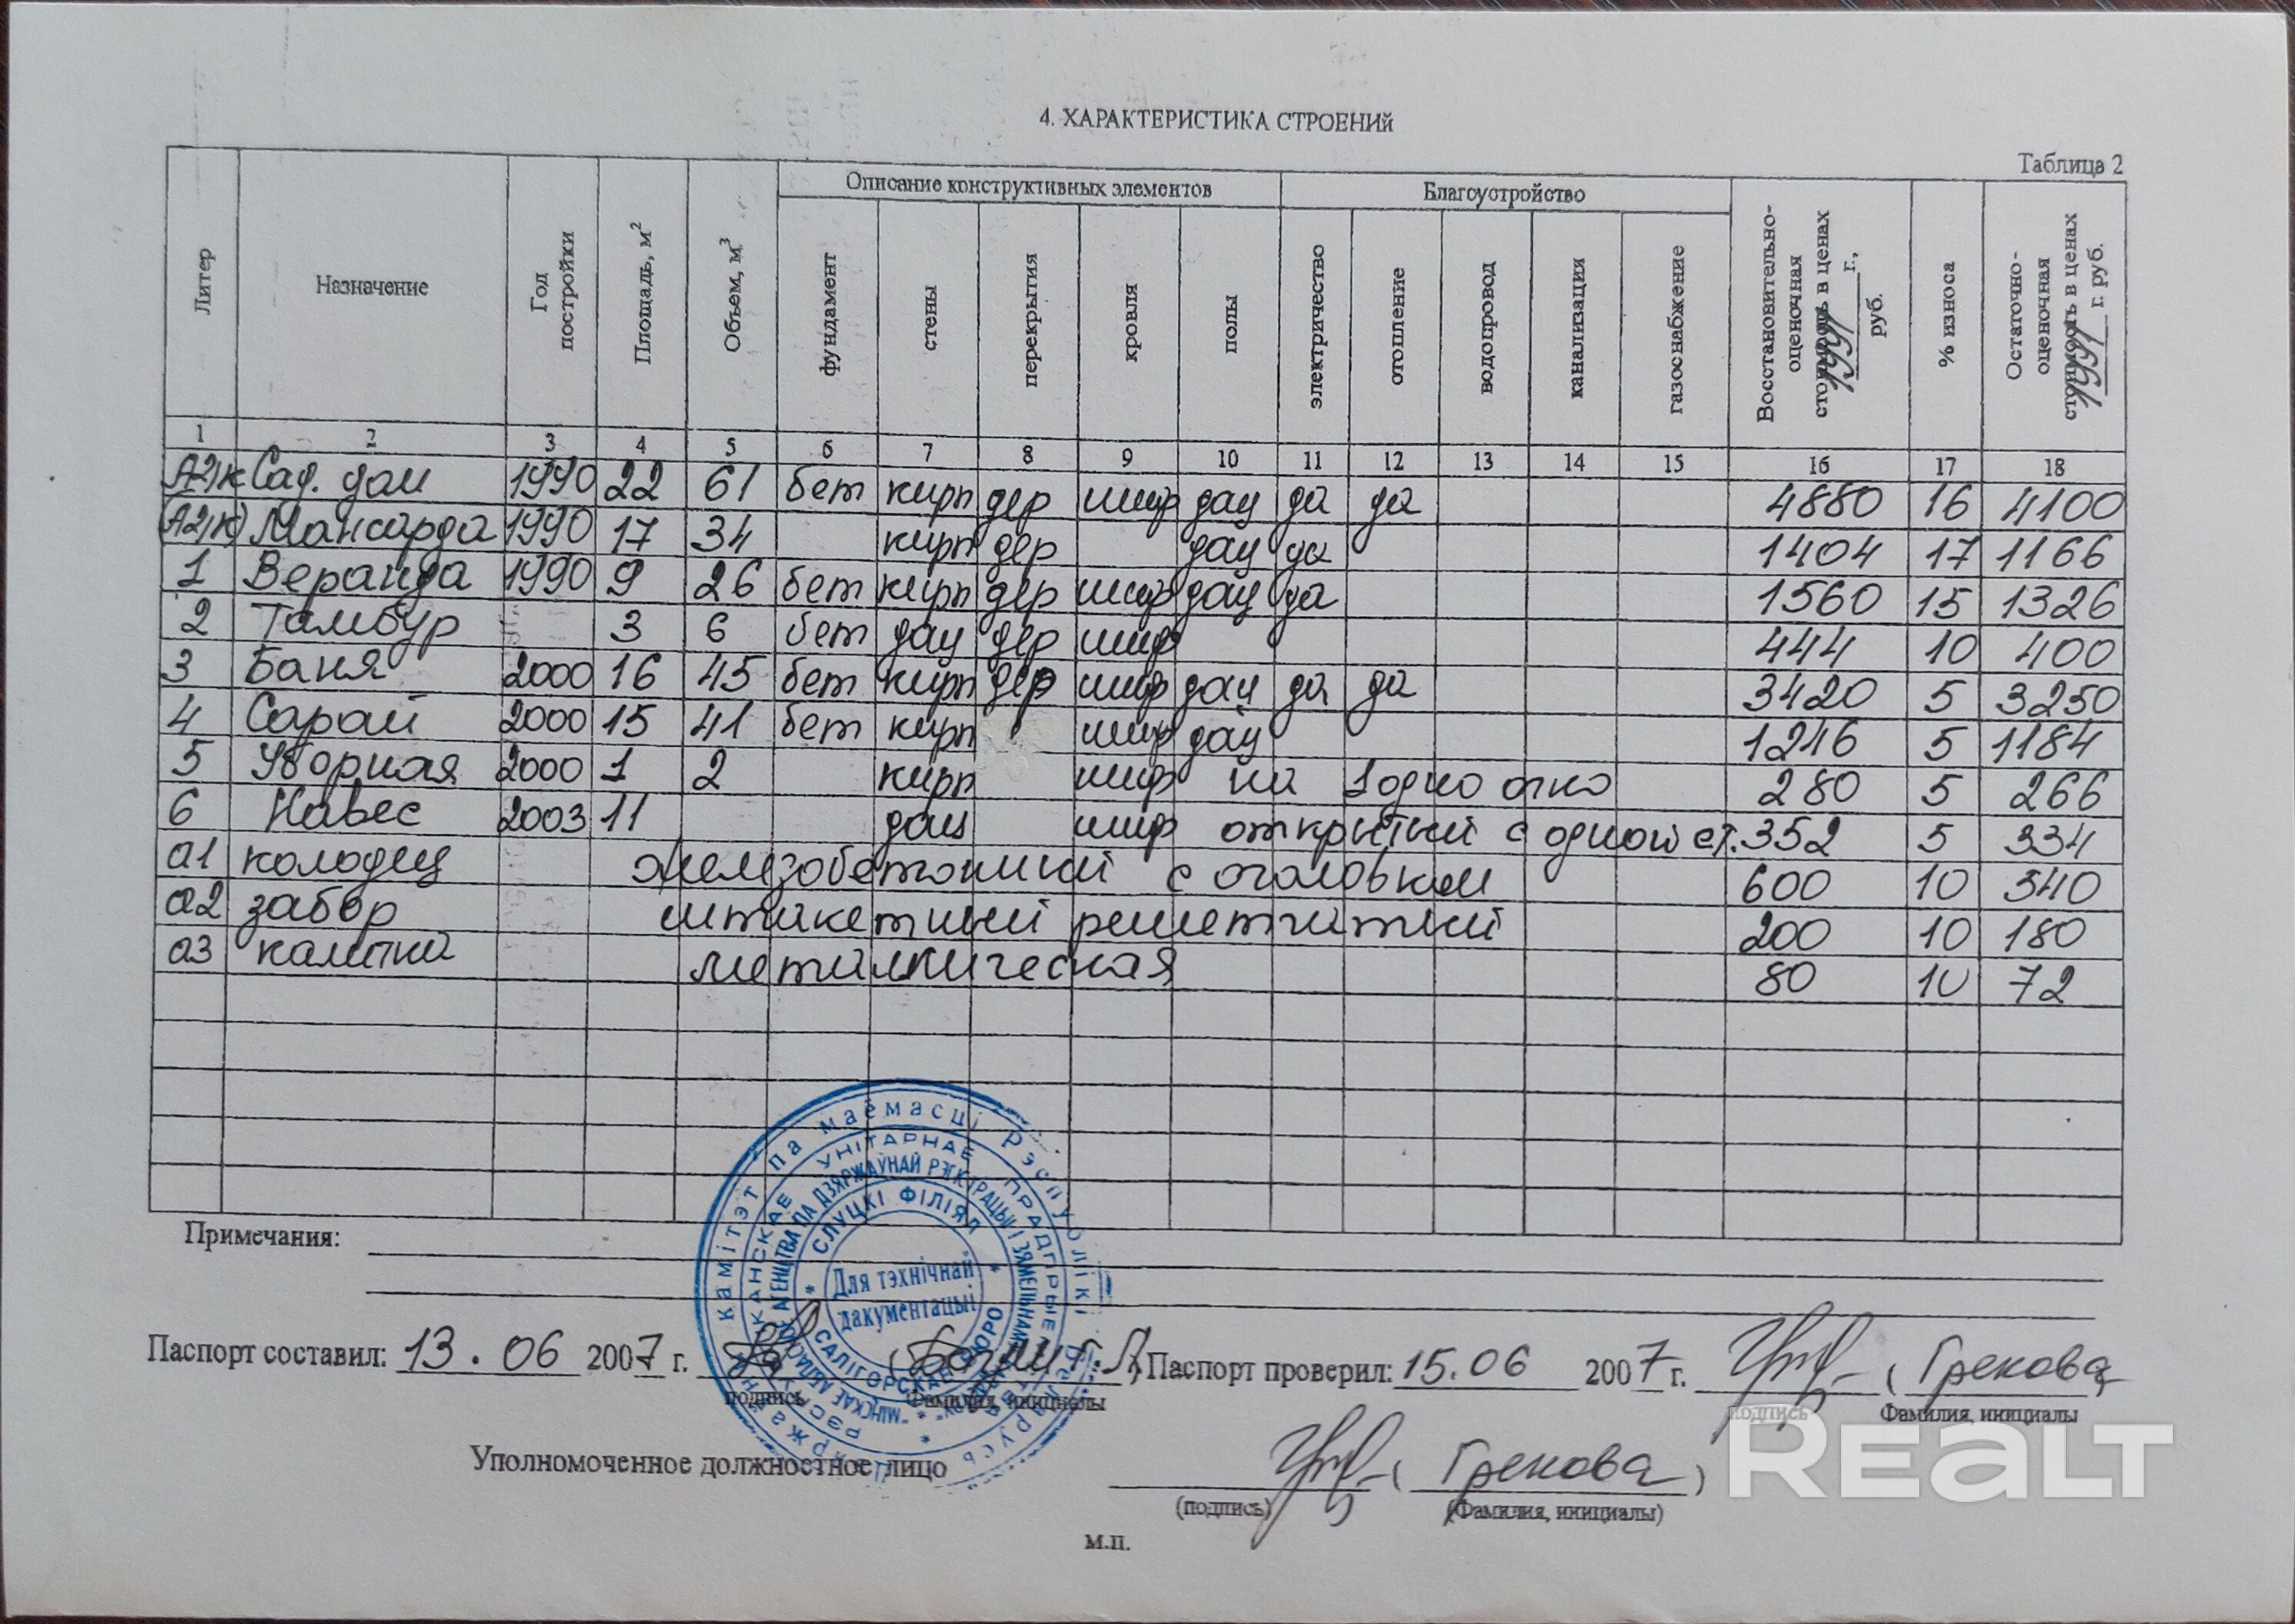 4. ХАРАКТЕРИСТИКА СТРОЕНИЙ
Таблица 2
Литер Назначение Год постройки Площадь, м² Объем, м³ Описание конструктивных элементов Благоустройство Восстановительно-оценочная стоимость в ценах 1991 г., руб. % износа Остаточно-оценочная стоимость в ценах 1991 г. руб.
фундамент стены перекрытия кровля полы электричество отопление водопровод канализация газоснабжение
1 2 3 4 5 6 7 8 9 10 11 12 13 14 15 16 17 18
А2/к Сад. дом 1990 22 61 бет кирп дер шиф дощ да да 4880 16 4100
(А2/к) Мансарда 1990 17 34 кирп дер дощ да 1404 17 1166
1 Веранда 1990 9 26 бет кирп дер шиф дощ да 1560 15 1326
2 Тамбур 3 6 бет дощ дер шиф 444 10 400
3 Баня 2000 16 45 бет кирп дер шиф дощ да да 3420 5 3250
4 Сарай 2000 15 41 бет кирп шиф дощ 1246 5 1184
5 Уборная 2000 1 2 кирп шиф на 1 одно очко 280 5 266
6 Навес 2003 11 дощ шиф открытый с одной ст. 352 5 334
а1 колодец железобетонный с оголовком 600 10 540
а2 забор штакетный решетчатый 200 10 180
а3 калитка металлическая 80 10 72
Дзяржаўны камітэт па маёмасці Рэспублікі Беларусь
УНІТАРНАЕ ПРАДПРЫЕМСТВА
СЛУЦКІ ФІЛІЯЛ
САЛІГОРСКАЕ БЮРО
Для тэхнічнай
дакументацыі
Примечания:
Паспорт составил: 13.06 2007 г. Паспорт проверил: 15.06 2007 г. (Грекова
подпись Фамилия, инициалы подпись Фамилия, инициалы
Уполномоченное должностное лицо (Грекова)
(подпись) (Фамилия, инициалы)
м.п.
Realt